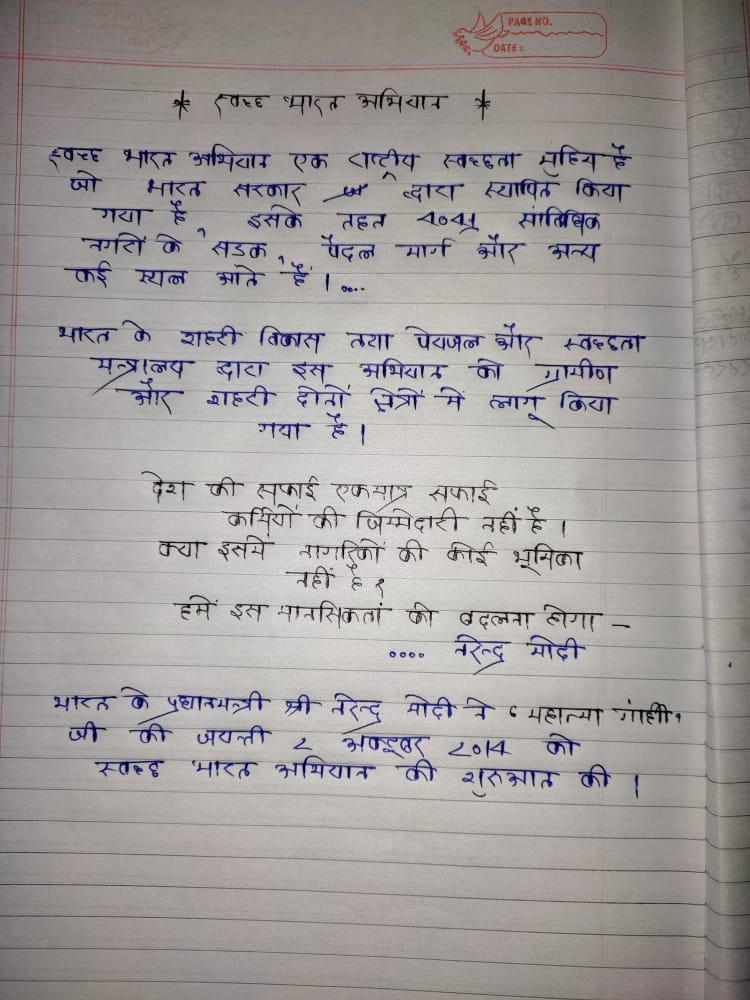 PAGE NO.
DATE :
* स्वच्छ भारत अभियान *
स्वच्छ भारत अभियान एक राष्ट्रीय स्वच्छता मुहिम है
जो भारत सरकार द्वारा स्थापित किया
गया है, इसके तहत 4041 सांविधिक
नगरों के सडक, पैदल मार्ग और अन्य
कई स्थल आते हैं ।....
भारत के शहरी विकास तथा पेयजल और स्वच्छता
मन्त्रालय द्वारा इस अभियान को ग्रामीण
और शहरी दोनों क्षेत्रों में लागू किया
गया है ।
देश की सफाई एकमात्र सफाई
कर्मियों की जिम्मेदारी नहीं है ।
क्या इसमें नागरिकों की कोई भूमिका
नहीं है ?
हमें इस मानसिकतां को बदलना होगा –
.... नरेन्द्र मोदी
भारत के प्रधानमन्त्री श्री नरेन्द्र मोदी ने ‘महात्मा गांधी’
जी की जयन्ती 2 अक्टूबर 2014 को
स्वच्छ भारत अभियान की शुरुआत की ।